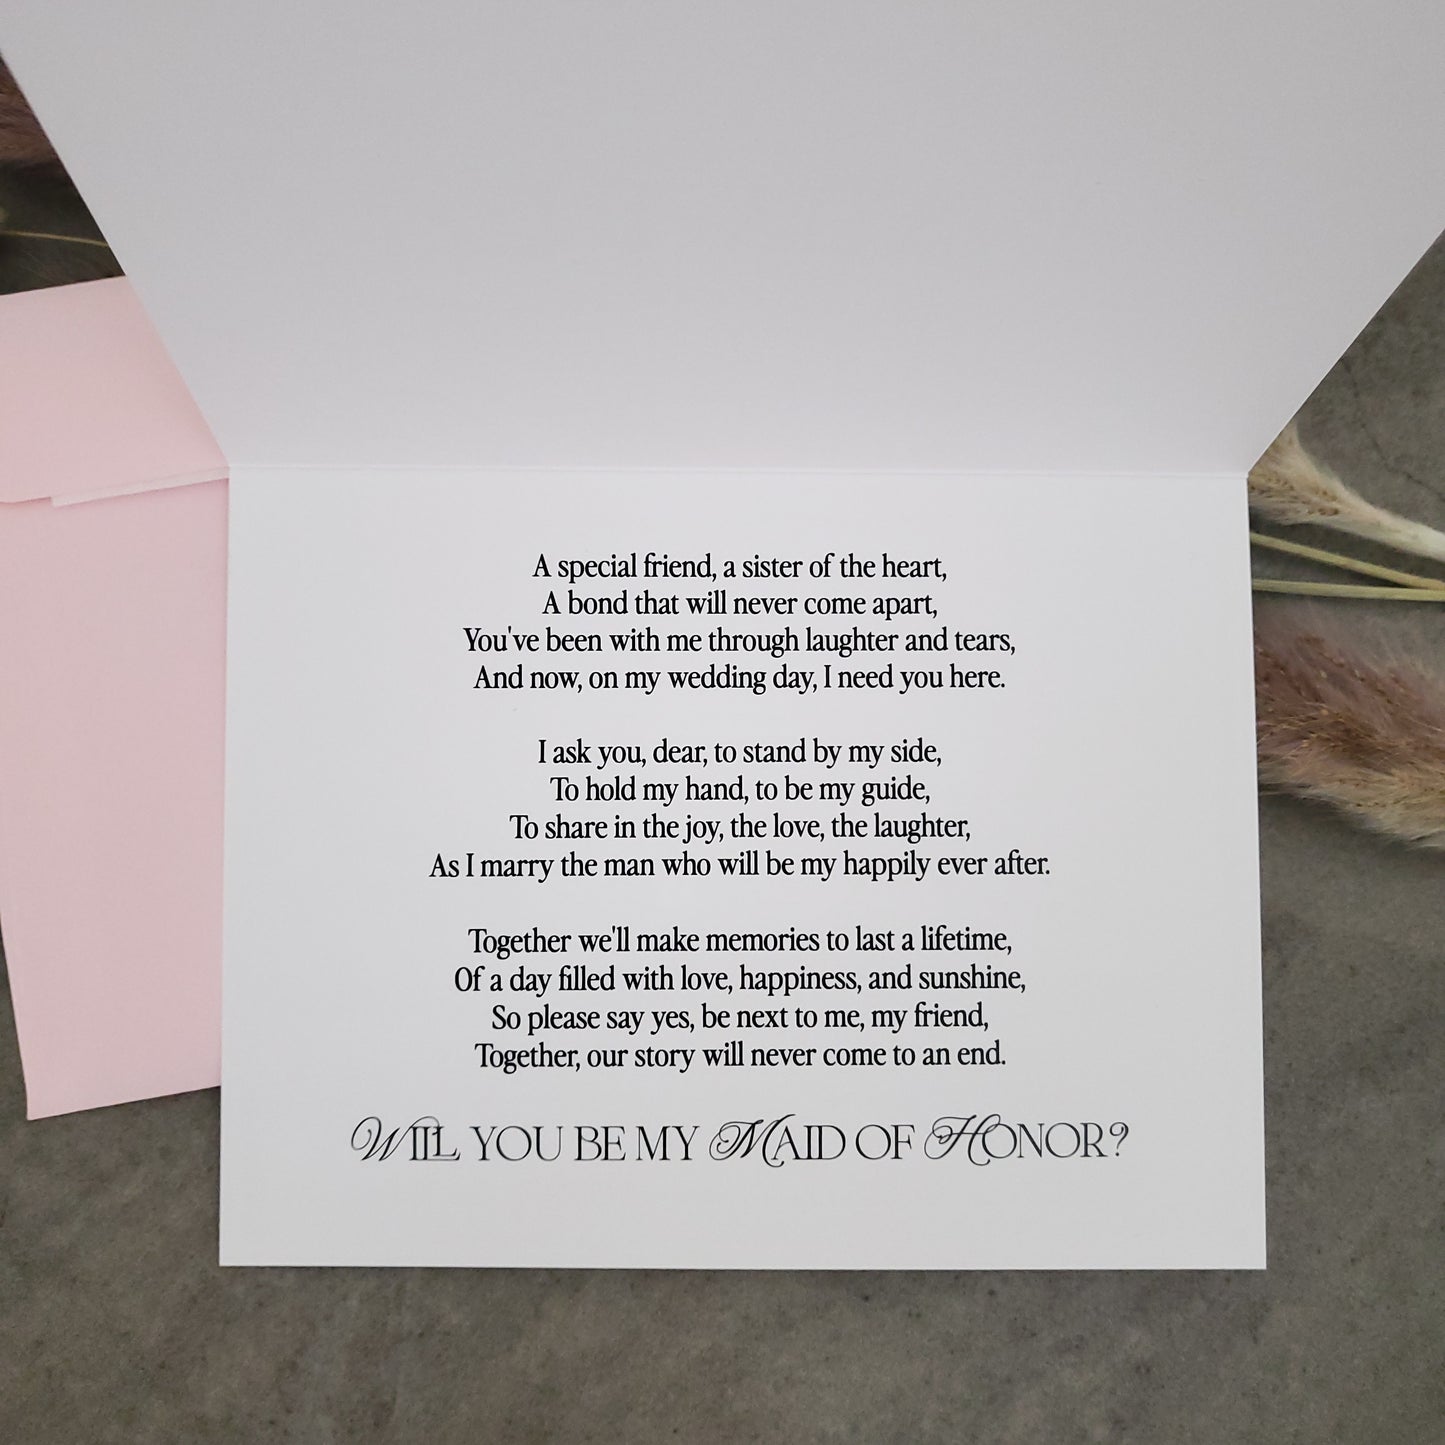 A special friend, a sister of the heart,
A bond that will never come apart,
You've been with me through laughter and tears,
And now, on my wedding day, I need you here.
I ask you, dear, to stand by my side,
To hold my hand, to be my guide,
To share in the joy, the love, the laughter,
As I marry the man who will be my happily ever after.
Together we'll make memories to last a lifetime,
Of a day filled with love, happiness, and sunshine,
So please say yes, be next to me, my friend,
Together, our story will never come to an end.
WILL YOU BE MY MAID OF HONOR?